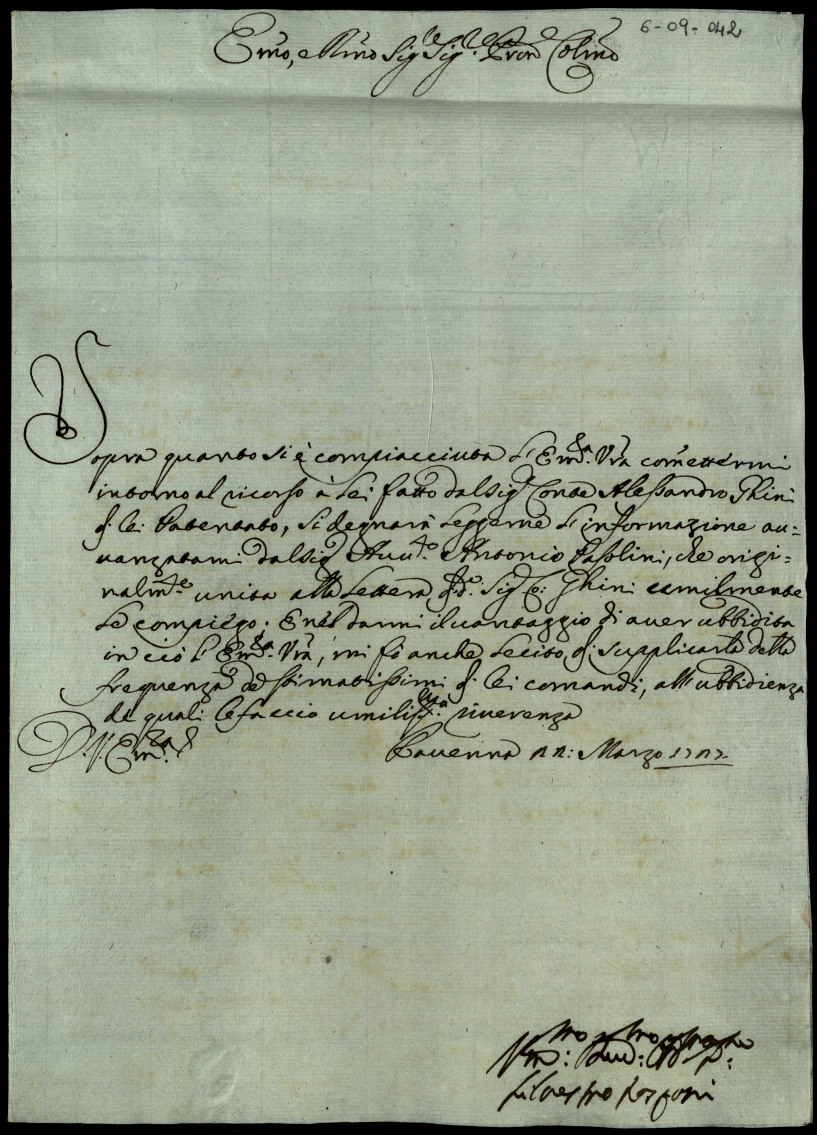 6-09-042
Emo, e Rmo Sig.re Sig.re Pron Colmo
Sopra quanto si è compiacciuta l'Em.za Vra comettermi
intorno al ricorso à Lei fatto dal Sig.r Conte Alessandro Ghini
di Lei Patentato, si degnarà leggerne l'informazione au=
uanzatami dal Sig.r Auu.to Antonio Pasolini, che origi=
nalm.te unita alla lettera di d.o Sig.r C: Ghini umilmente
Le compiego. E nel darmi il uantaggio di auer ubbidita
in ciò l'Em.za Vra, mi fò anche lecito di supplicarla della
frequenza de stimatissimi di Lei comandi, all'ubbidienza
de quali le faccio umiliss.ma riuerenza
D. V. Em.za
Rauenna 22: Marzo 1727
Um: Diu:
Siluestro Rasponi